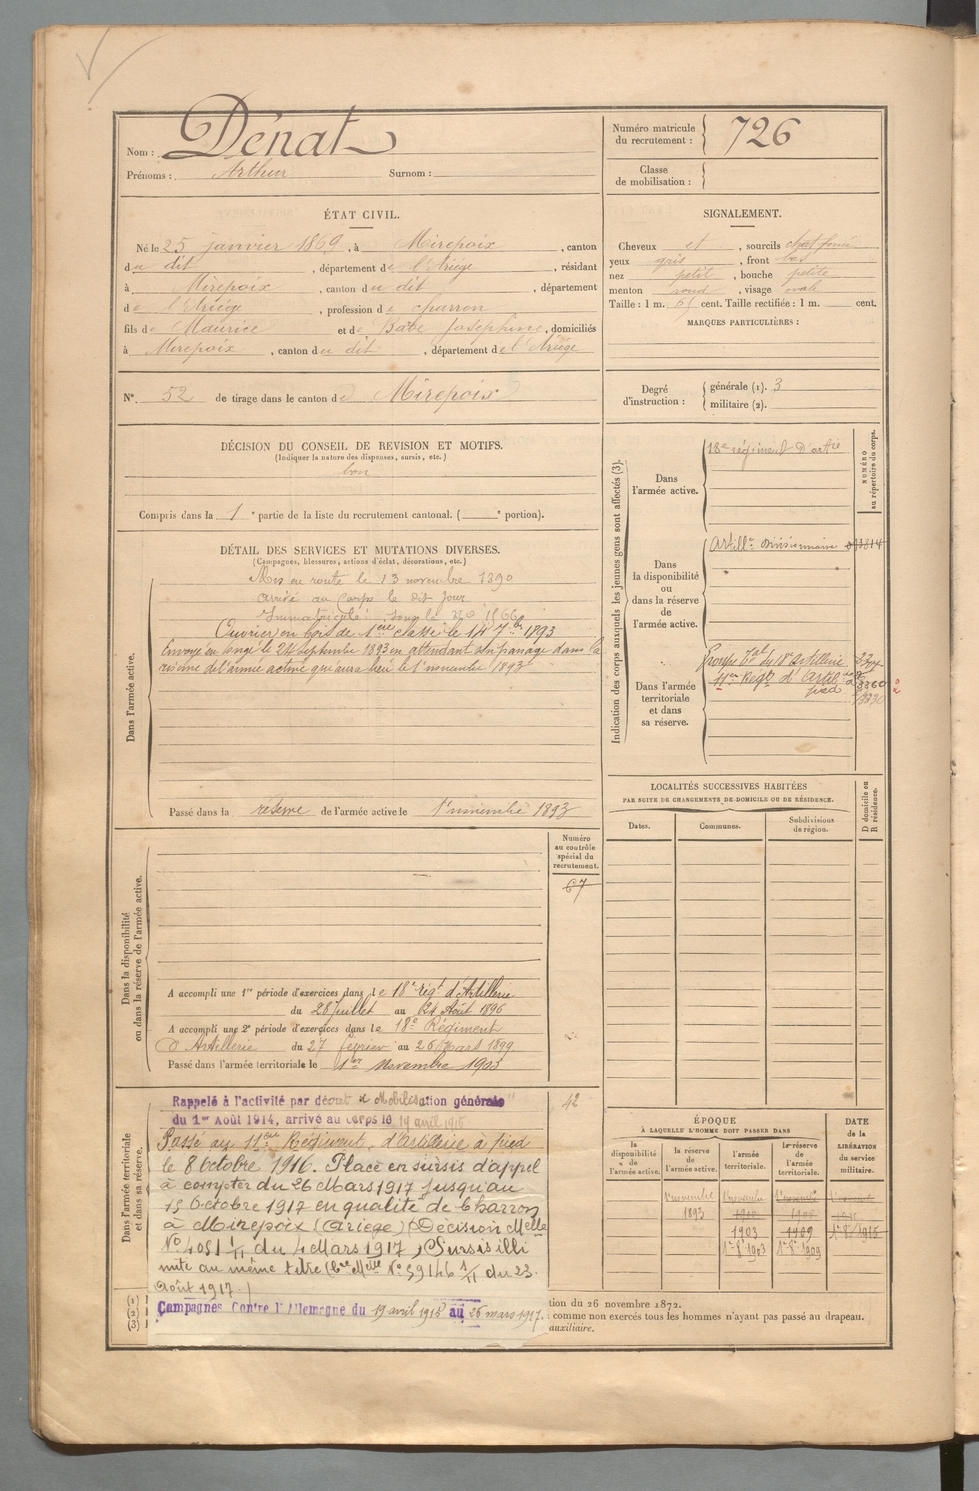 Nom : Dénat
Prénoms : Arthur Surnom :
Numéro matricule du recrutement : 726
Classe de mobilisation :
ÉTAT CIVIL.
Né le 25 janvier 1869, à Mirepoix, canton
du dit, département de l'Ariége, résidant
à Mirepoix, canton du dit, département
de l'Ariége, profession de charron
fils de Maurice et de Josephine, domiciliés
à Mirepoix, canton du dit, département de l'Ariége
SIGNALEMENT.
Cheveux et, sourcils chat foncé
yeux gris, front bas
nez petit, bouche petite
menton rond, visage ovale
Taille : 1 m. cent. Taille rectifiée : 1 m. cent.
MARQUES PARTICULIÈRES :
N° 52 de tirage dans le canton de Mirepoix
Degré d'instruction :
générale (1). 3
militaire (2).
DÉCISION DU CONSEIL DE REVISION ET MOTIFS.
(Indiquer la nature des dispenses, sursis, etc.)
bon
Compris dans la 1e partie de la liste du recrutement cantonal. ( e portion).
DÉTAIL DES SERVICES ET MUTATIONS DIVERSES.
(Campagnes, blessures, actions d'éclat, décorations, etc.)
Dans l'armée active.
Mis en route le 13 novembre 1890
arrivé au corps le dit jour
Immatriculé sous le no
Ouvrier en bois de 1ère classe le 14 7bre 1893
Envoyé en congé le 24 septembre 1893 en attendant son passage dans la
réserve de l'armée active qui aura lieu le 1er novembre 1893
Passé dans la réserve de l'armée active le 1er novembre 1893
Indication des corps auxquels les jeunes gens sont affectés (3).
NUMÉRO au répertoire du corps.
Dans l'armée active.
18e régiment d'artie
Dans la disponibilité ou dans la réserve de l'armée active.
Artillie Divisionnaire
Dans l'armée territoriale et dans sa réserve.
Groupe Tal du 18e Artillerie
11ème Regt d'Artil à pied
3360
LOCALITÉS SUCCESSIVES HABITÉES
PAR SUITE DE CHANGEMENTS DE DOMICILE OU DE RÉSIDENCE.
Dates. Communes. Subdivisions de région. D domicile ou R résidence.
Dans la disponibilité ou dans la réserve de l'armée active.
Numéro au contrôle spécial du recrutement.
67
A accompli une 1re période d'exercices dans le 18e régt d'Artillerie
du 28 Juillet au 24 Août 1896
A accompli une 2e période d'exercices dans le 18e Régiment
d'Artillerie du 27 février au 26 Mars 1899
Passé dans l'armée territoriale le 1er Novembre 1903
Dans l'armée territoriale et dans sa réserve.
42
Rappelé à l'activité par décret de Mobilisation générale"
du 1er Août 1914, arrivé au corps le 19 avril 1915
Passé au 11ème Régiment d'Artillerie à pied
le 8 Octobre 1916. Placé en sursis d'appel
à compter du 26 Mars 1917 jusqu'au
15 Octobre 1917 en qualité de Charron
à Mirepoix (Ariège) (Décision Melle
No 4051 1/11 du 4 Mars 1917) Sursis illi
mité au même titre (Cre Melle No 59146 1/11 du 23
Août 1917.)
Campagnes Contre l'Allemagne du 19 avril 1915 au 26 mars 1917.
ÉPOQUE
À LAQUELLE L'HOMME DOIT PASSER DANS
la disponibilité de l'armée active. la réserve de l'armée active. l'armée territoriale. la réserve de l'armée territoriale.
DATE de la LIBÉRATION du service militaire.
1er novembre 1er novembre 1er novembre
1893 1900
1903 1909 1er 8bre 1915
1er 8bre 1903 1er 8bre 1909
(1)
(2)
(3)
tion du 26 novembre 1872.
comme non exercés tous les hommes n'ayant pas passé au drapeau.
auxiliaire.